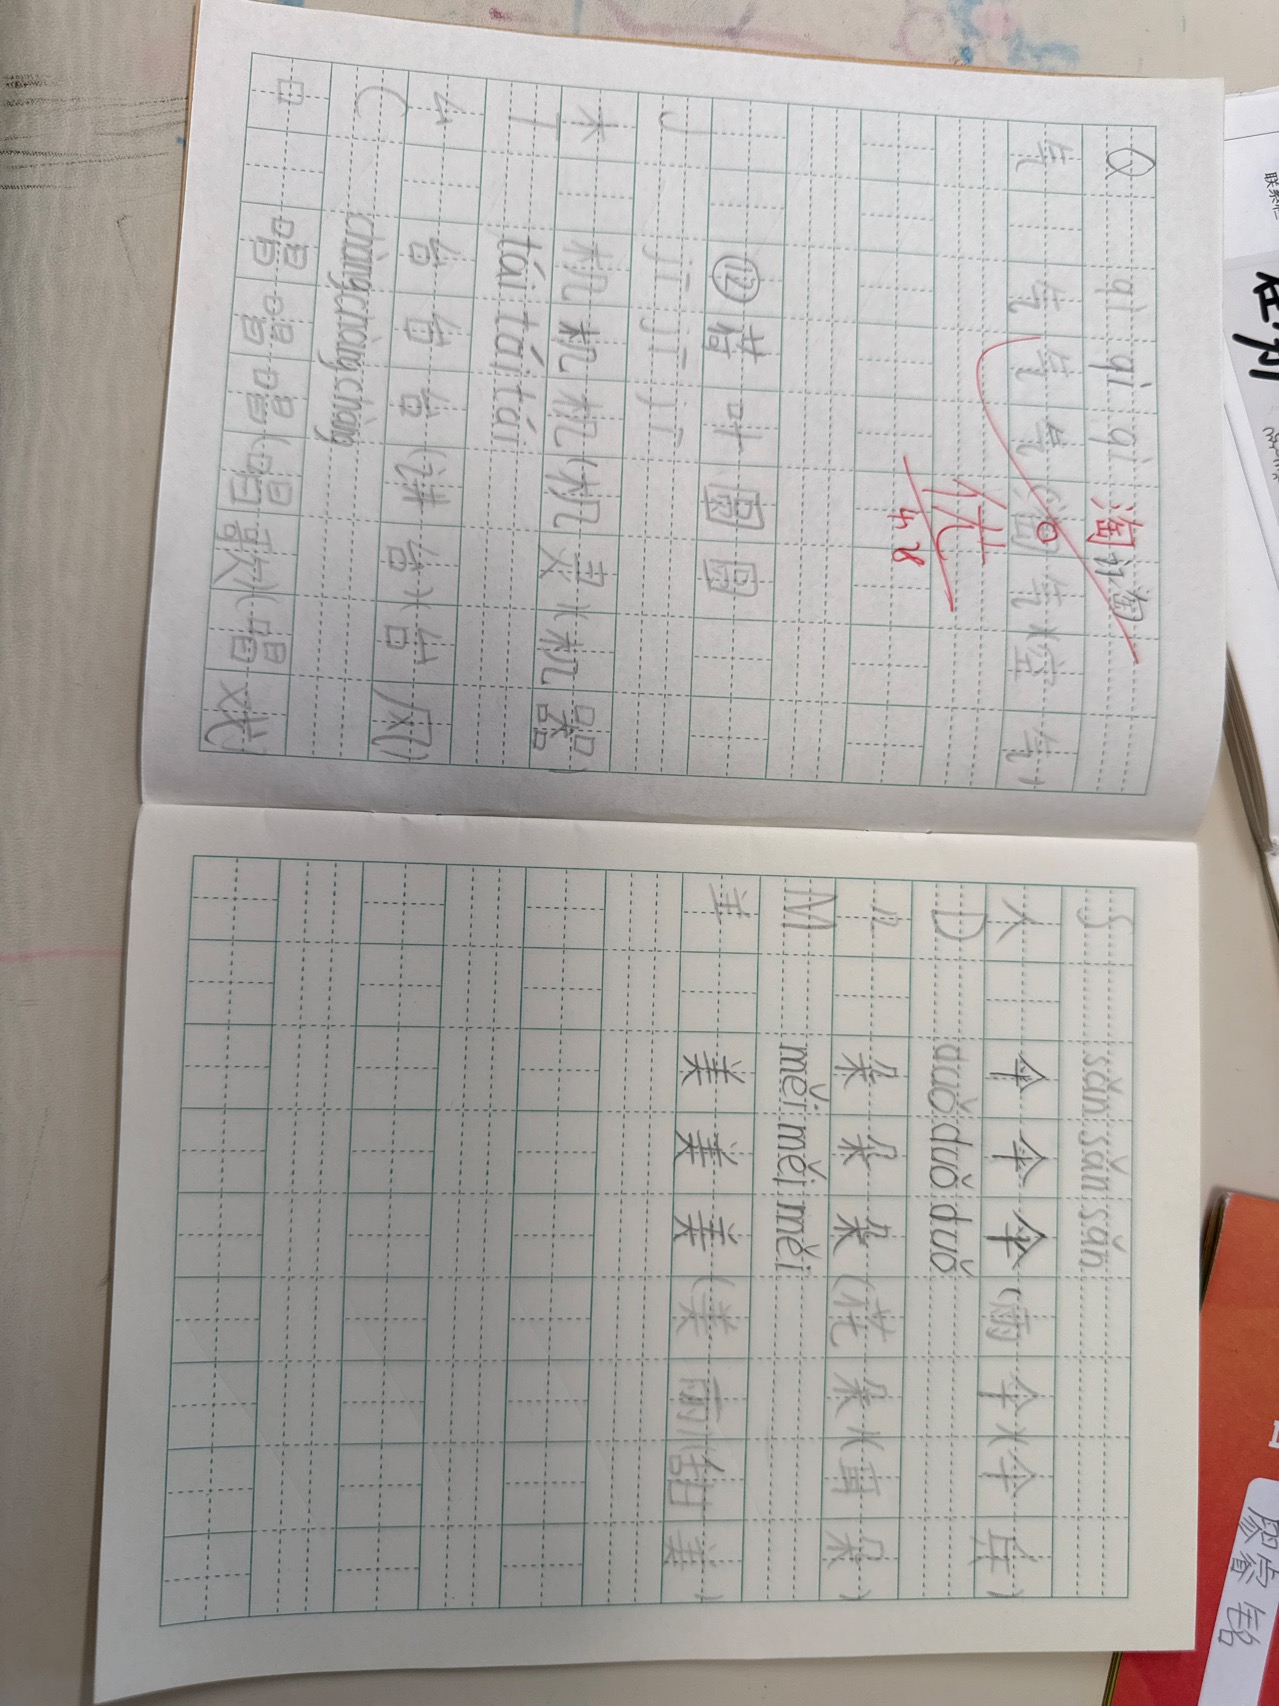 Q qì qì qì 淘淘
气 气气气(淘气)(空气)
优
4.28
⑫荷叶圆圆
J jī jī jī
木 机机机(机灵)(机器)
T tái tái tái
厶 台台台(讲台)(台风)
C chàng chàng chàng
口 唱唱唱(唱歌)(唱戏)
S sǎn sǎn sǎn
人 伞伞伞(雨伞)(伞兵)
D duǒ duǒ duǒ
几 朵朵朵(花朵)(耳朵)
M měi měi měi
美美美(美丽)(甜美)